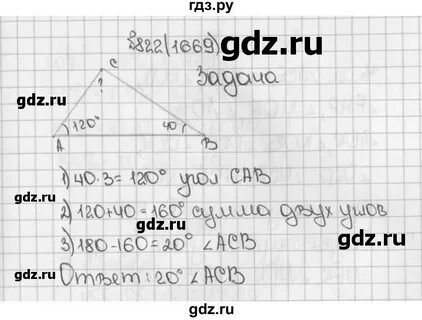 гдз.ру
№822(1669)
gdz.ru
Задача
C
?
gdz.ru
120° 40
A B
gdz.ru
1) 40·3=120° угол CAB
2) 120+40=160° сумма двух углов
gdz.ru
3) 180-160=20° ∠ACB
gdz.ru
Ответ: 20° ∠ACB
gdz.ru
gdz.ru